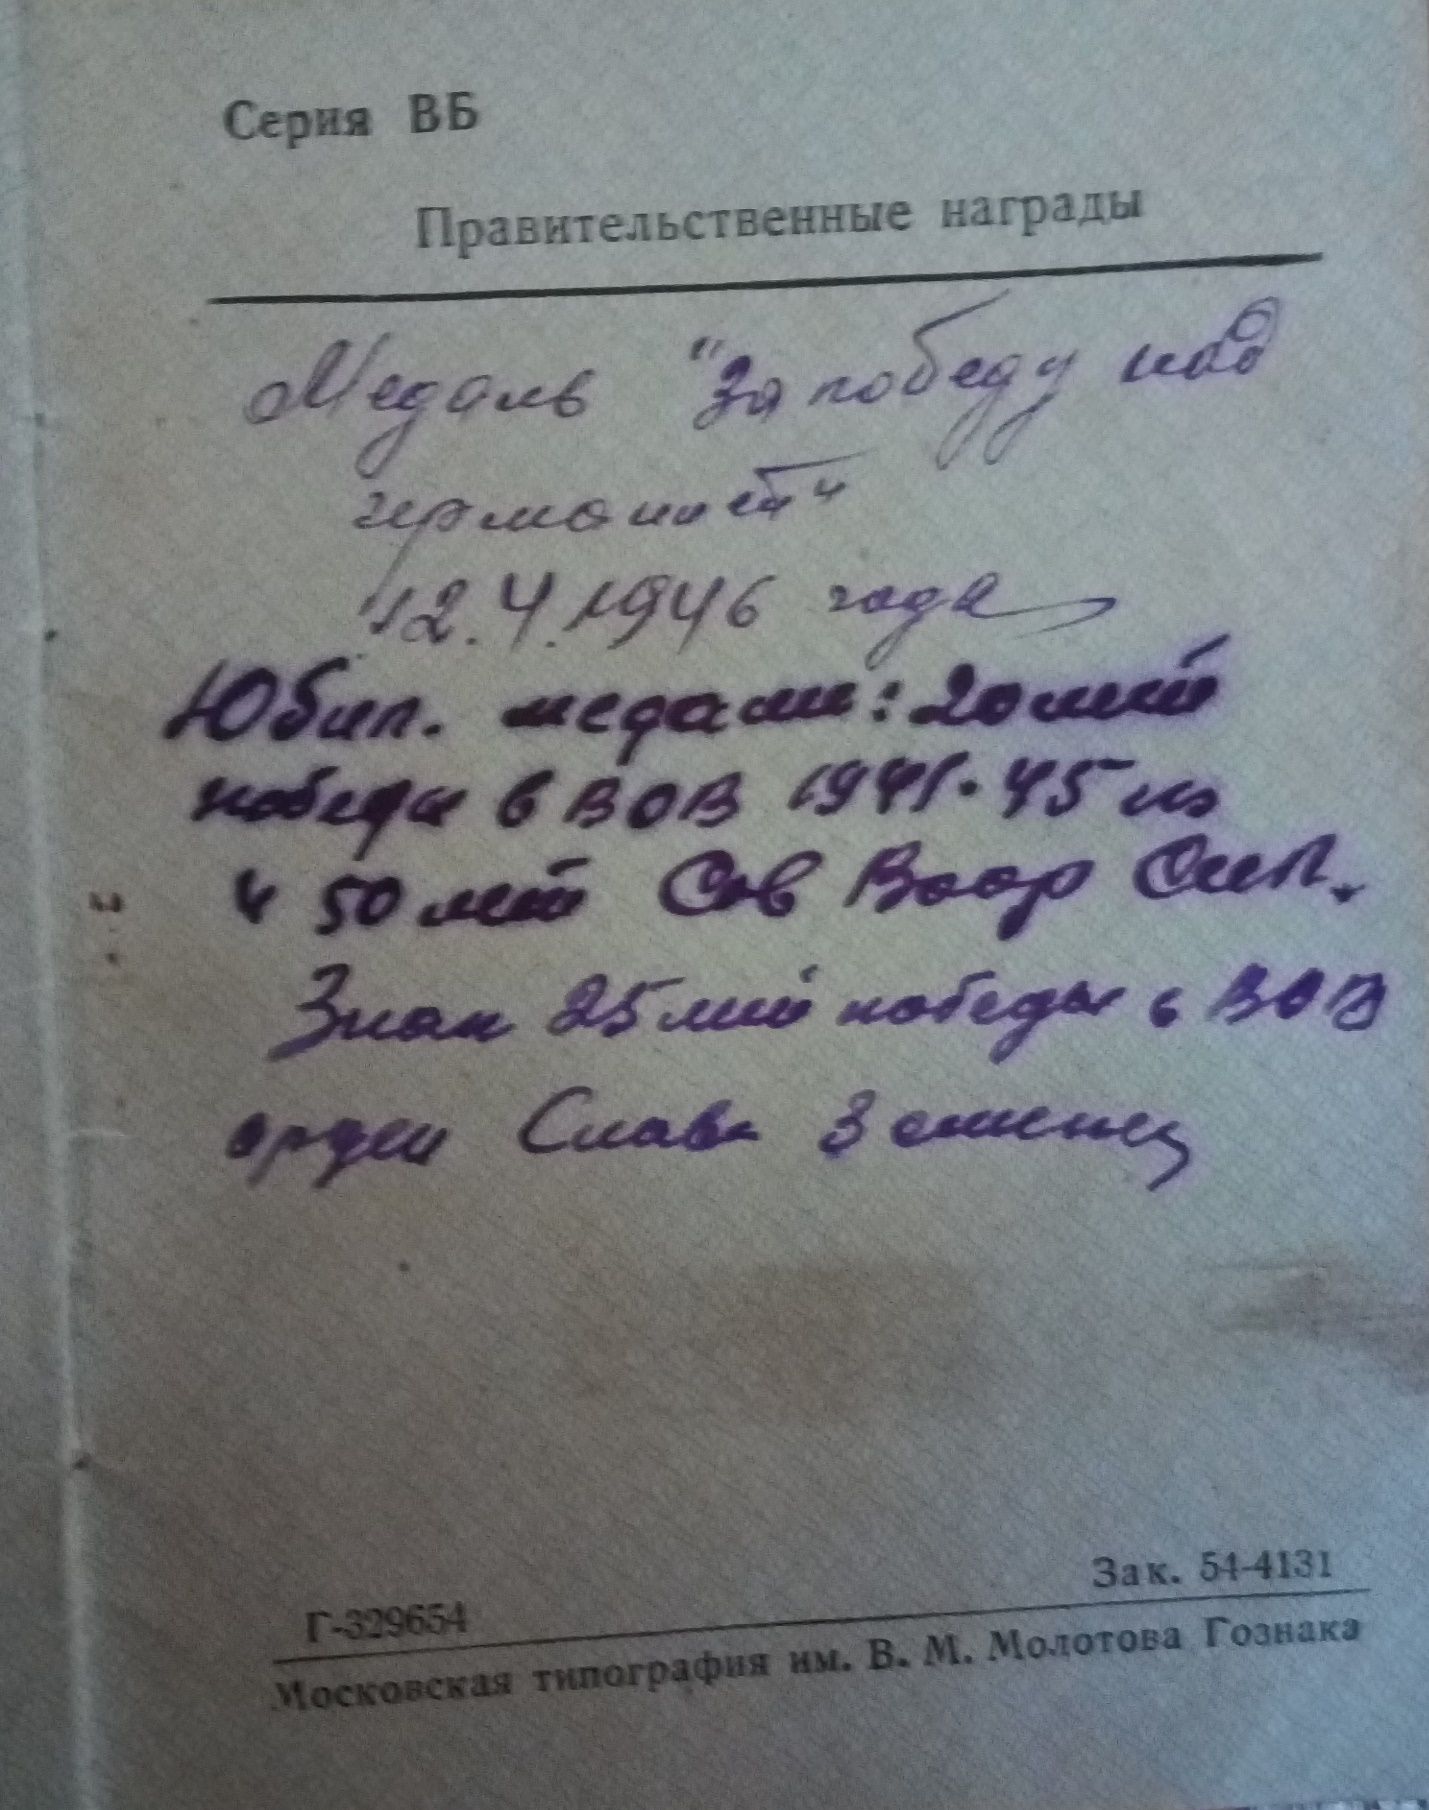 Серия ВБ
Правительственные награды
Медаль "За победу над
германией"
12.4.1946 года
Юбил. медали: 20 лет
победы в ВОВ 1941-45 гг
и 50 лет Сов Воор Сил.
Знак 25 лет победы в ВОВ
орден Славы 3 степени
Г-329654
Зак. 54-4131
Московская типография им. В. М. Молотова Гознака